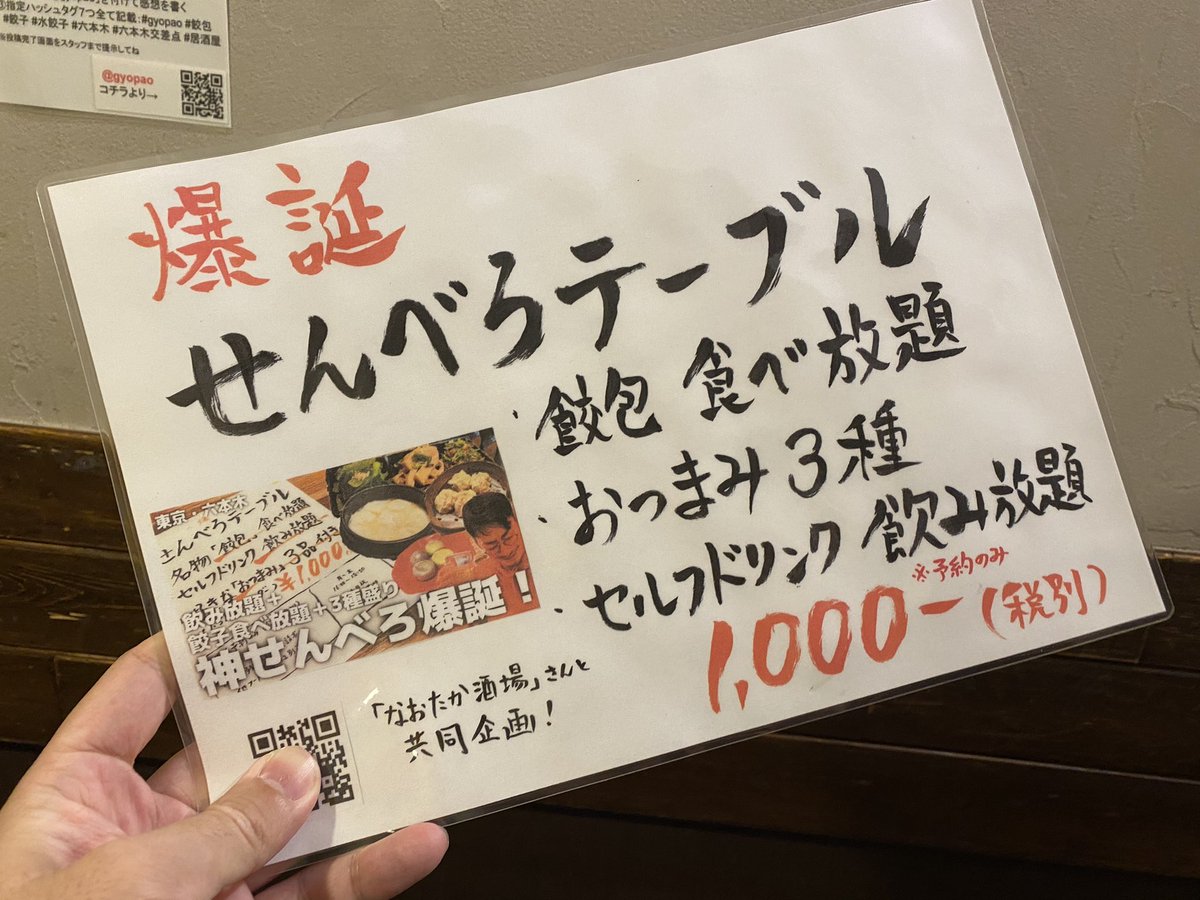 ①指定ハッシュタグ7つ全て記載:#gyopao #餃包
#餃子 #水餃子 #六本木 #六本木交差点 #居酒屋
※投稿完了画面をスタッフまで提示してね
@gyopao
コチラより→
爆誕
せんべろテーブル
・餃包 食べ放題
・おつまみ3種
・セルフドリンク 飲み放題
※予約のみ
1,000ー(税別)
東京・六本木
せんべろテーブル
名物「餃包」食べ放題
セルフドリンク 飲み放題
好きなおつまみ 3品付き
¥1,000
飲み放題+
餃子食べ放題+3種盛り
神せんべろ爆誕！
「なおたか酒場」さんと
共同企画！